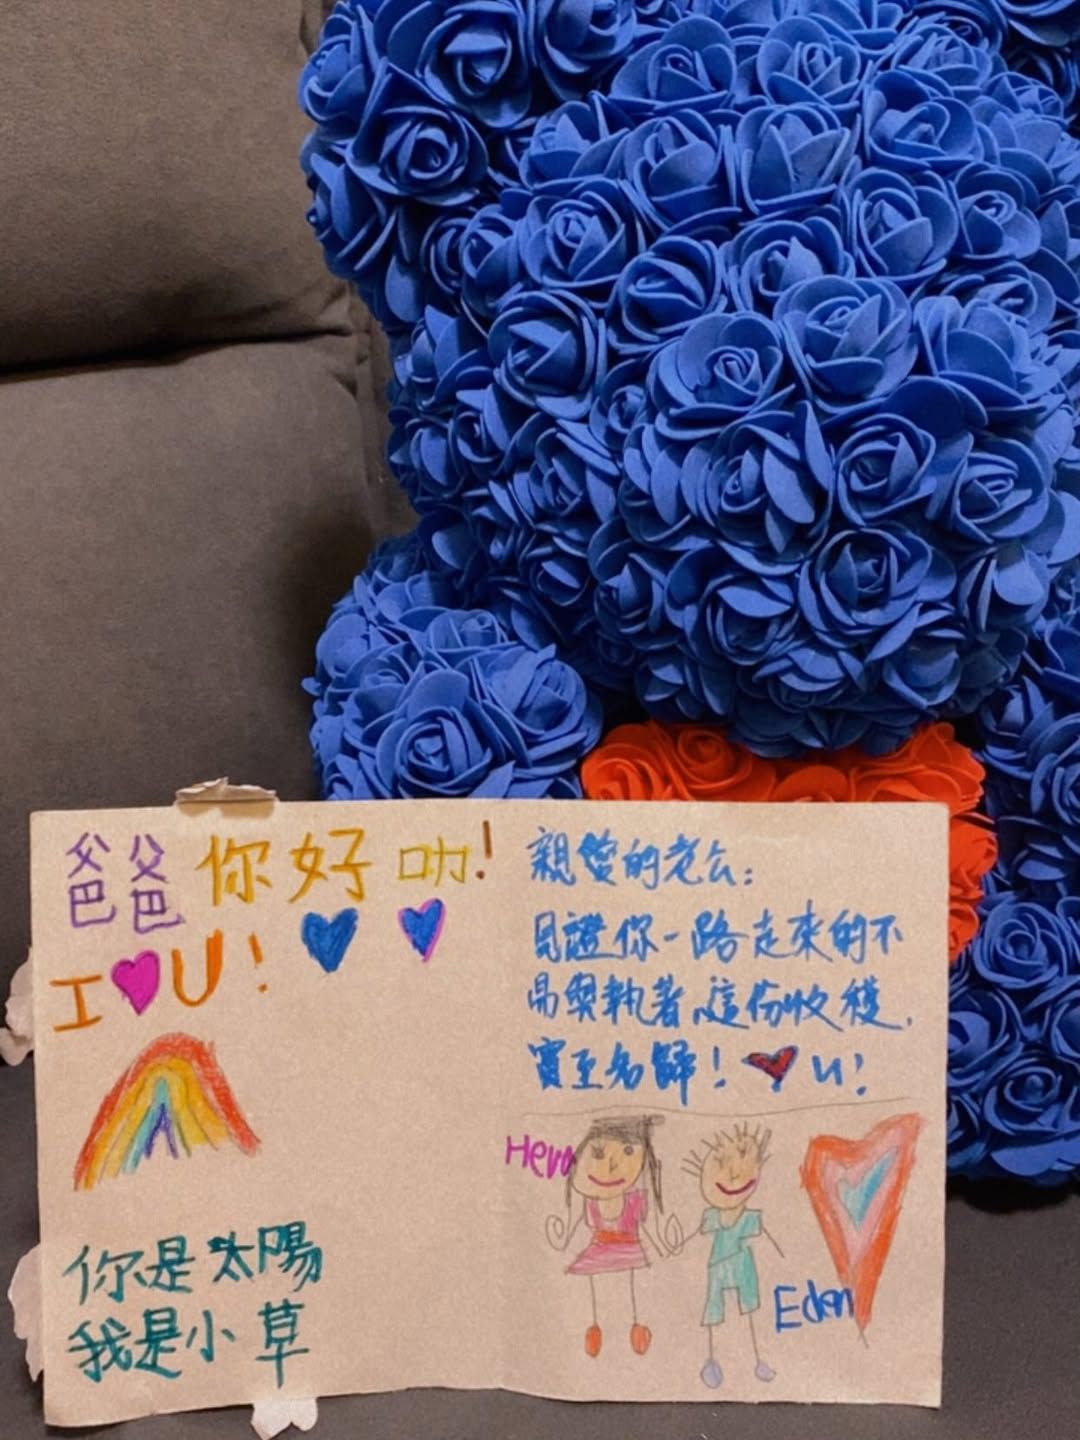 爸爸你好叻!
I ♥ U!
你是太陽
我是小草
親愛的老公:
見證你一路走來的不
易與執著,這份收穫,
實至名歸! ♥ u!
Hero
Eden